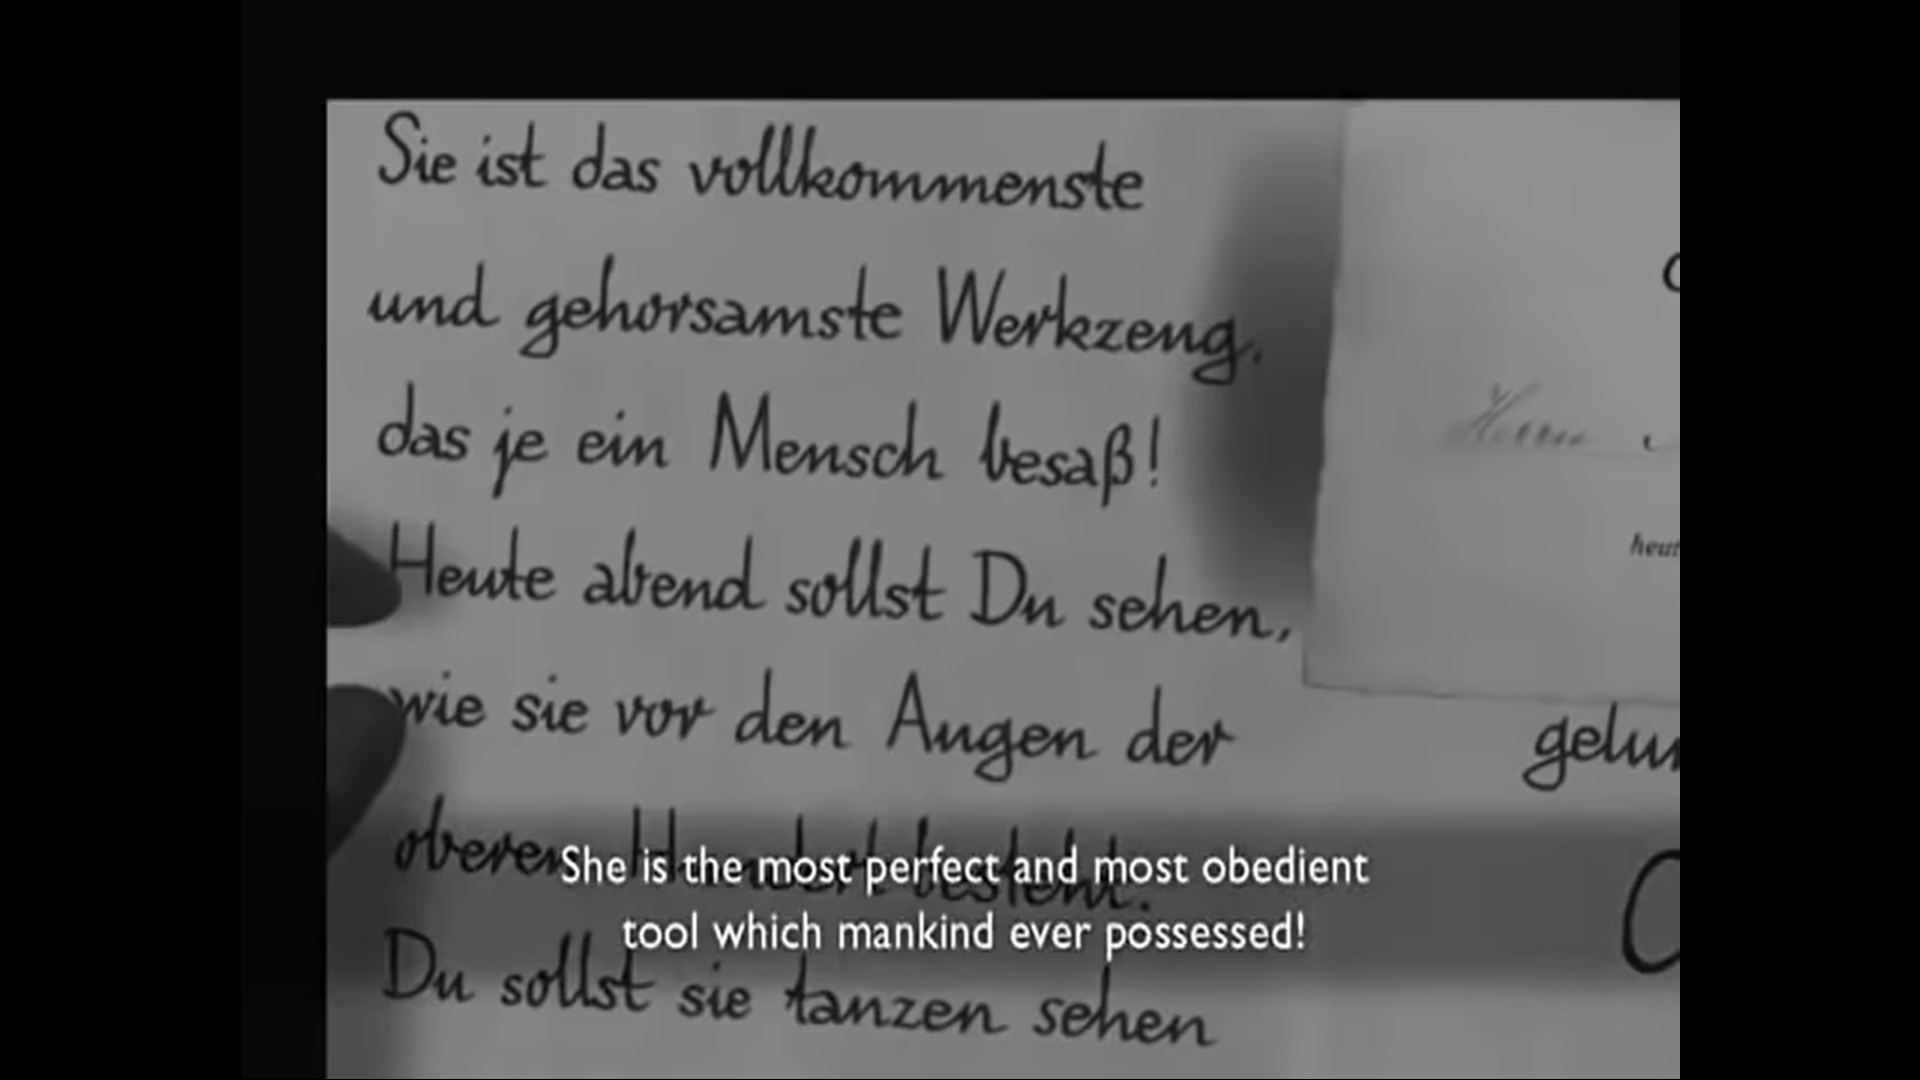 Sie ist das vollkommenste
und gehorsamste Werkzeug,
das je ein Mensch besaß!
Heute abend sollst Du sehen,
wie sie vor den Augen der
oberen Hundert besteht.
Du sollst sie tanzen sehen
Herrn
heut
gelun
She is the most perfect and most obedient
tool which mankind ever possessed!